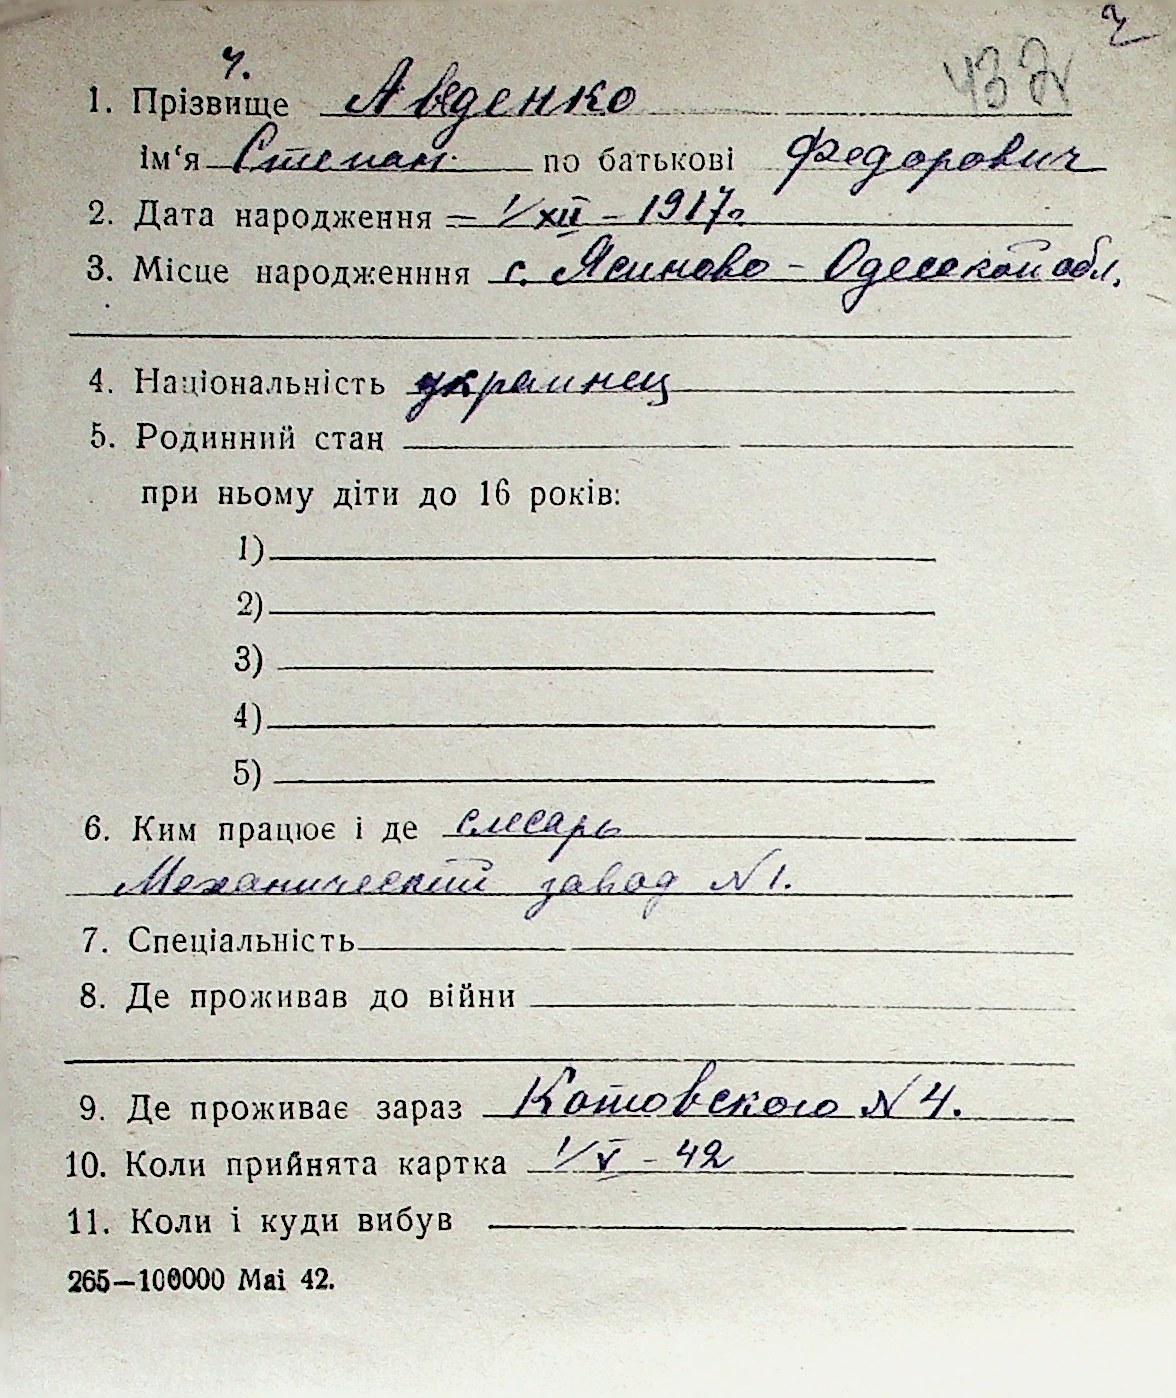 ч.
432
1. Прізвище Авденко
ім‘я Степан по батькові Федорович
2. Дата народження 1/XII - 1917г.
3. Місце народженння с. Ясиново - Одесской обл.
4. Національність украинец
5. Родинний стан
при ньому діти до 16 років:
1)
2)
3)
4)
5)
6. Ким працює і де слесарь
Механический завод N 1.
7. Спеціальність
8. Де проживав до війни
9. Де проживає зараз Котовского N 4.
10. Коли прийнята картка 1/V - 42
11. Коли і куди вибув
265—100000 Маі 42.